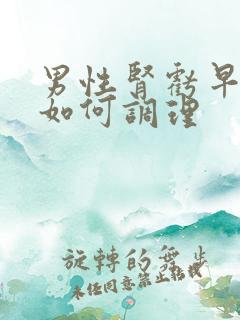 男性腎虧早
如何調理
旋轉的舞步
未经同意禁止転載